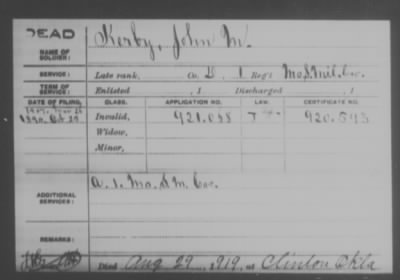 DEAD
NAME OF SOLDIER: Kerby, John M.
SERVICE: Late rank, Co. D, 1 Reg't Mo. S. Mil. Cav.
TERM OF SERVICE: Enlisted , 1 Discharged , 1
DATE OF FILING. CLASS. APPLICATION NO. LAW. CERTIFICATE NO.
1890. Oct 25 Invalid, 921.088 920.593
Widow,
Minor,
ADDITIONAL SERVICES: A. 1. Mo. S. M. Cav.
REMARKS:
Died Aug 29, 1919, at Clinton Okla